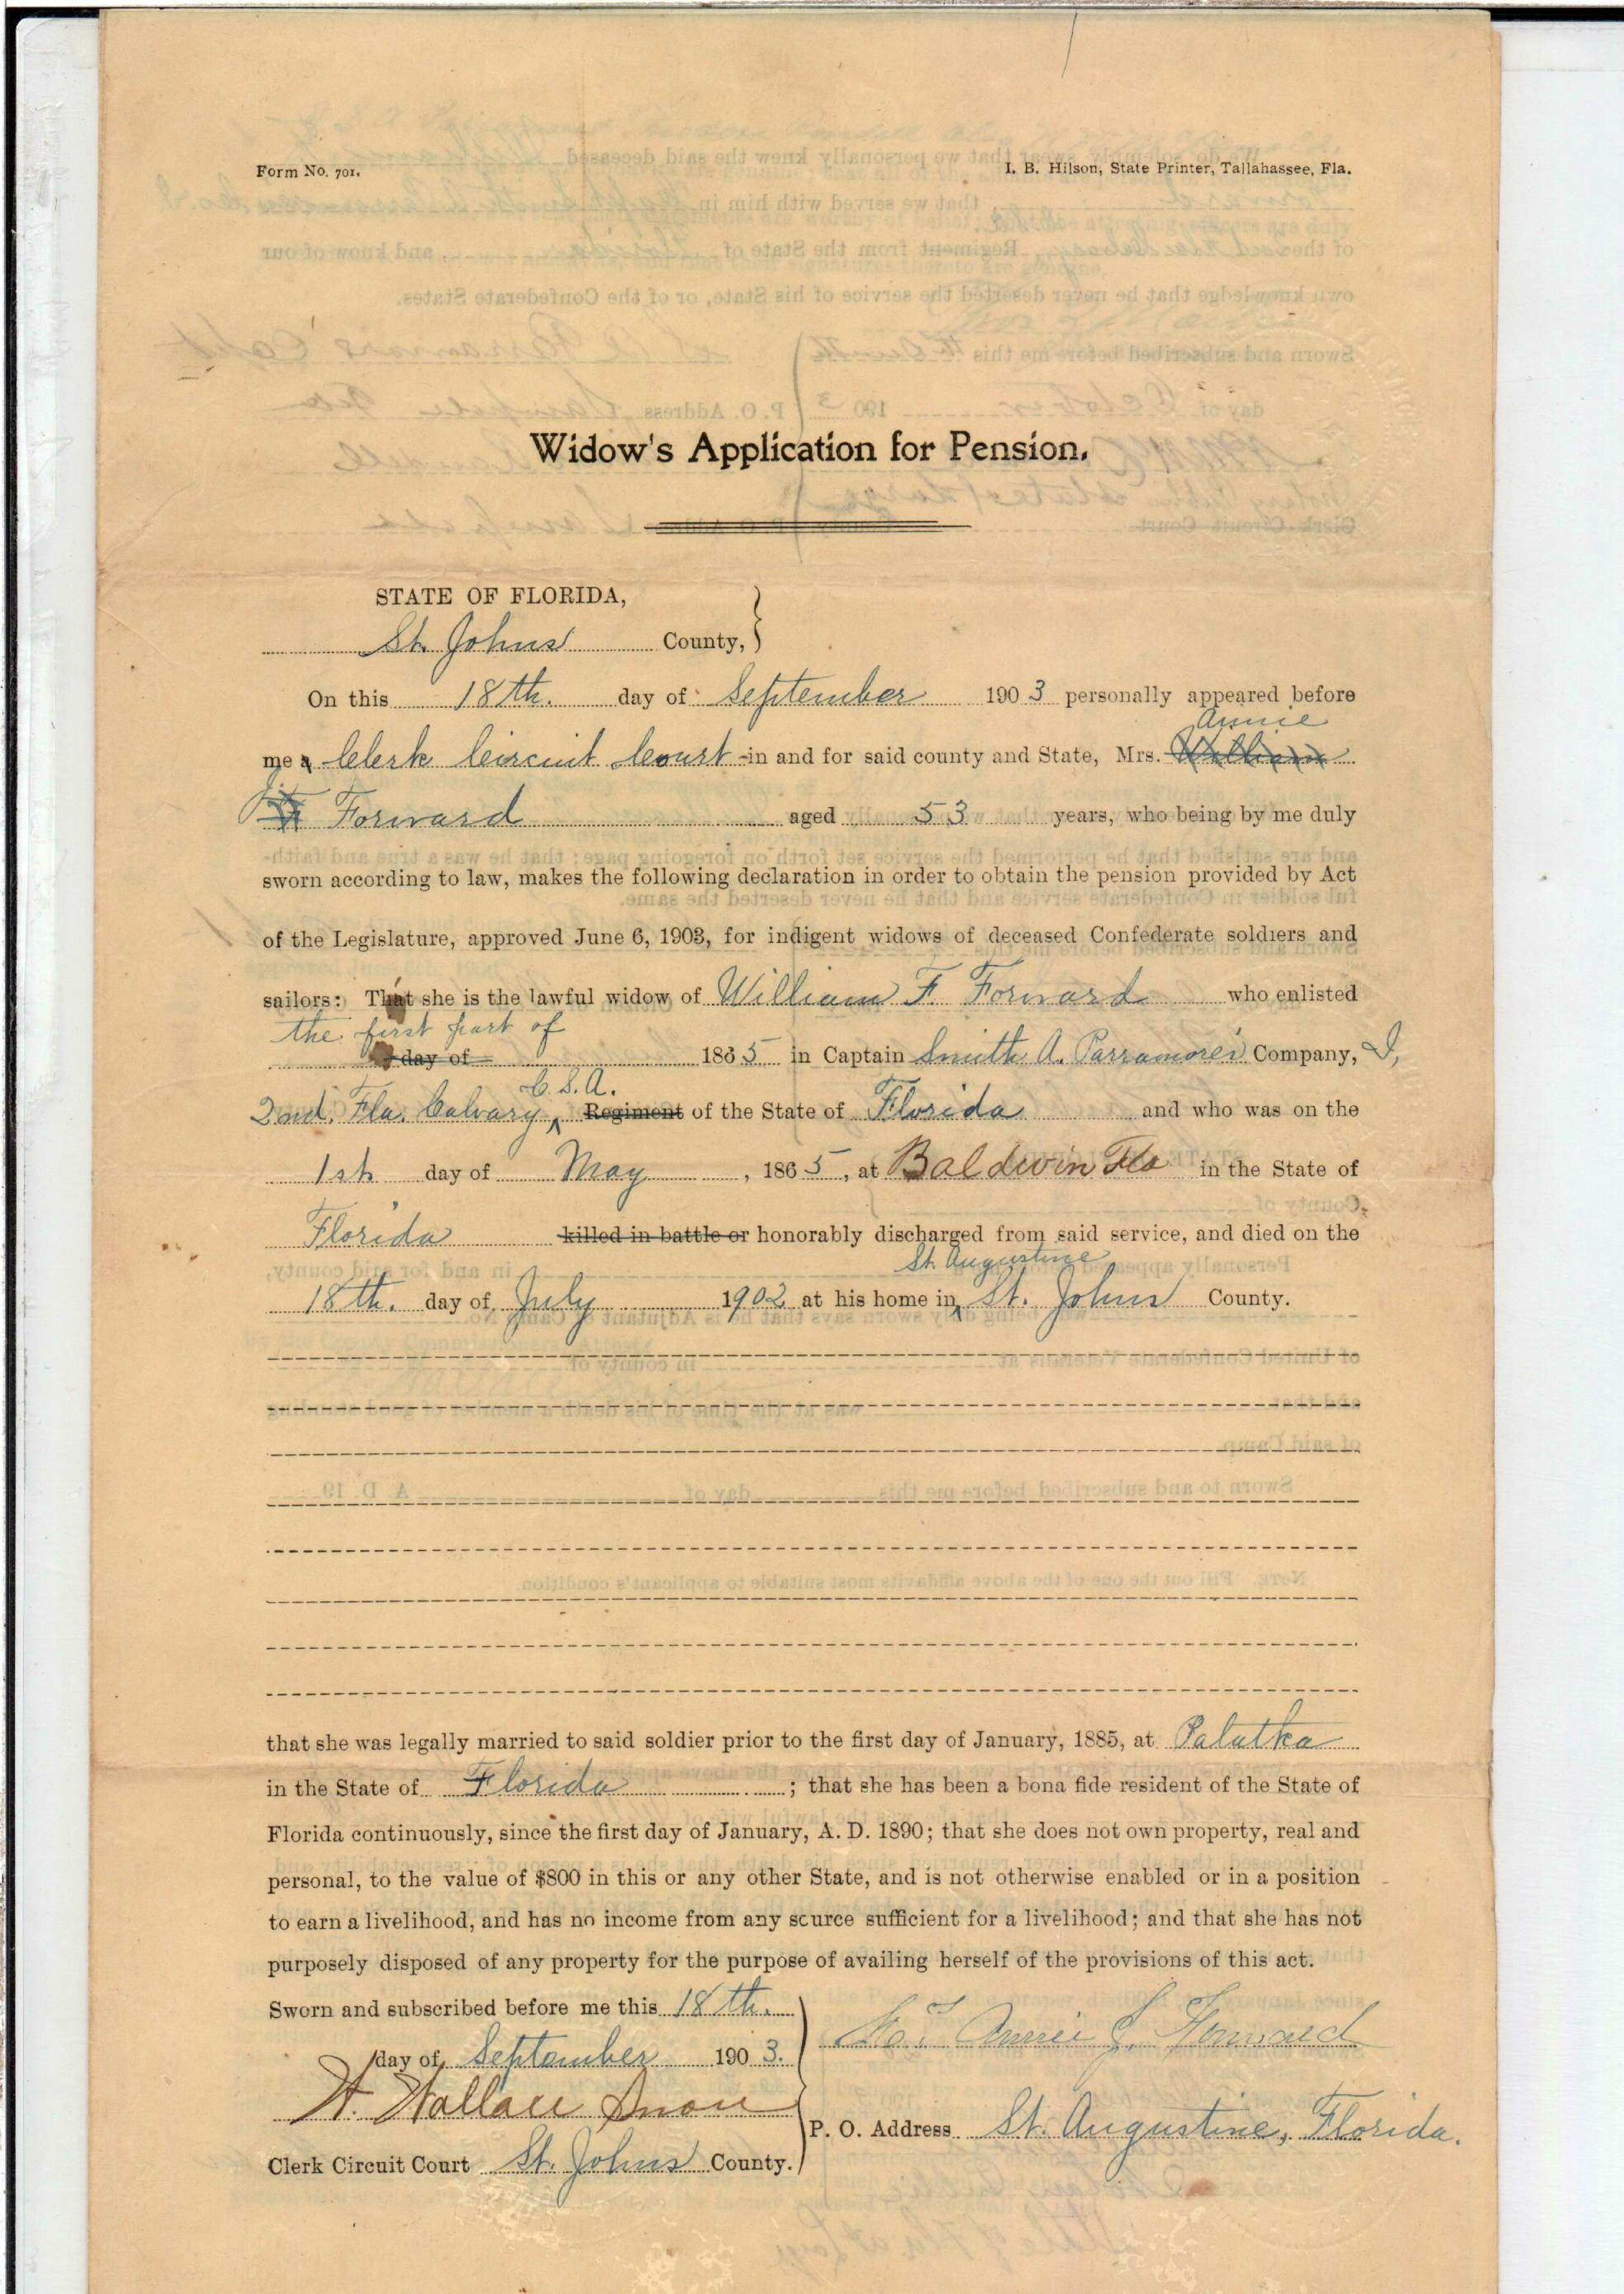 Form No. 701.
I. B. Hilson, State Printer, Tallahassee, Fla.
Widow's Application for Pension.
STATE OF FLORIDA,
St. Johns County,
On this 18th. day of September 1903 personally appeared before
Annie
me a Clerk Circuit Court in and for said county and State, Mrs. William
F Forward aged 53 years, who being by me duly
sworn according to law, makes the following declaration in order to obtain the pension provided by Act
of the Legislature, approved June 6, 1903, for indigent widows of deceased Confederate soldiers and
sailors: That she is the lawful widow of William F. Forward who enlisted
the first part of
day of 1865 in Captain Smith A. Parramore's Company, I,
C.S.A.
2nd. Fla. Calvary, Regiment of the State of Florida and who was on the
1st day of May, 1865, at Baldwin Fla in the State of
Florida killed in battle or honorably discharged from said service, and died on the
St. Augustine
18th. day of July 1902 at his home in St. Johns County.
that she was legally married to said soldier prior to the first day of January, 1885, at Palatka
in the State of Florida; that she has been a bona fide resident of the State of
Florida continuously, since the first day of January, A. D. 1890; that she does not own property, real and
personal, to the value of $800 in this or any other State, and is not otherwise enabled or in a position
to earn a livelihood, and has no income from any source sufficient for a livelihood; and that she has not
purposely disposed of any property for the purpose of availing herself of the provisions of this act.
Sworn and subscribed before me this 18th.
day of September 1903.
Annie J. Forward
W. Wallace Snow
P. O. Address St. Augustine, Florida.
Clerk Circuit Court St. Johns County.